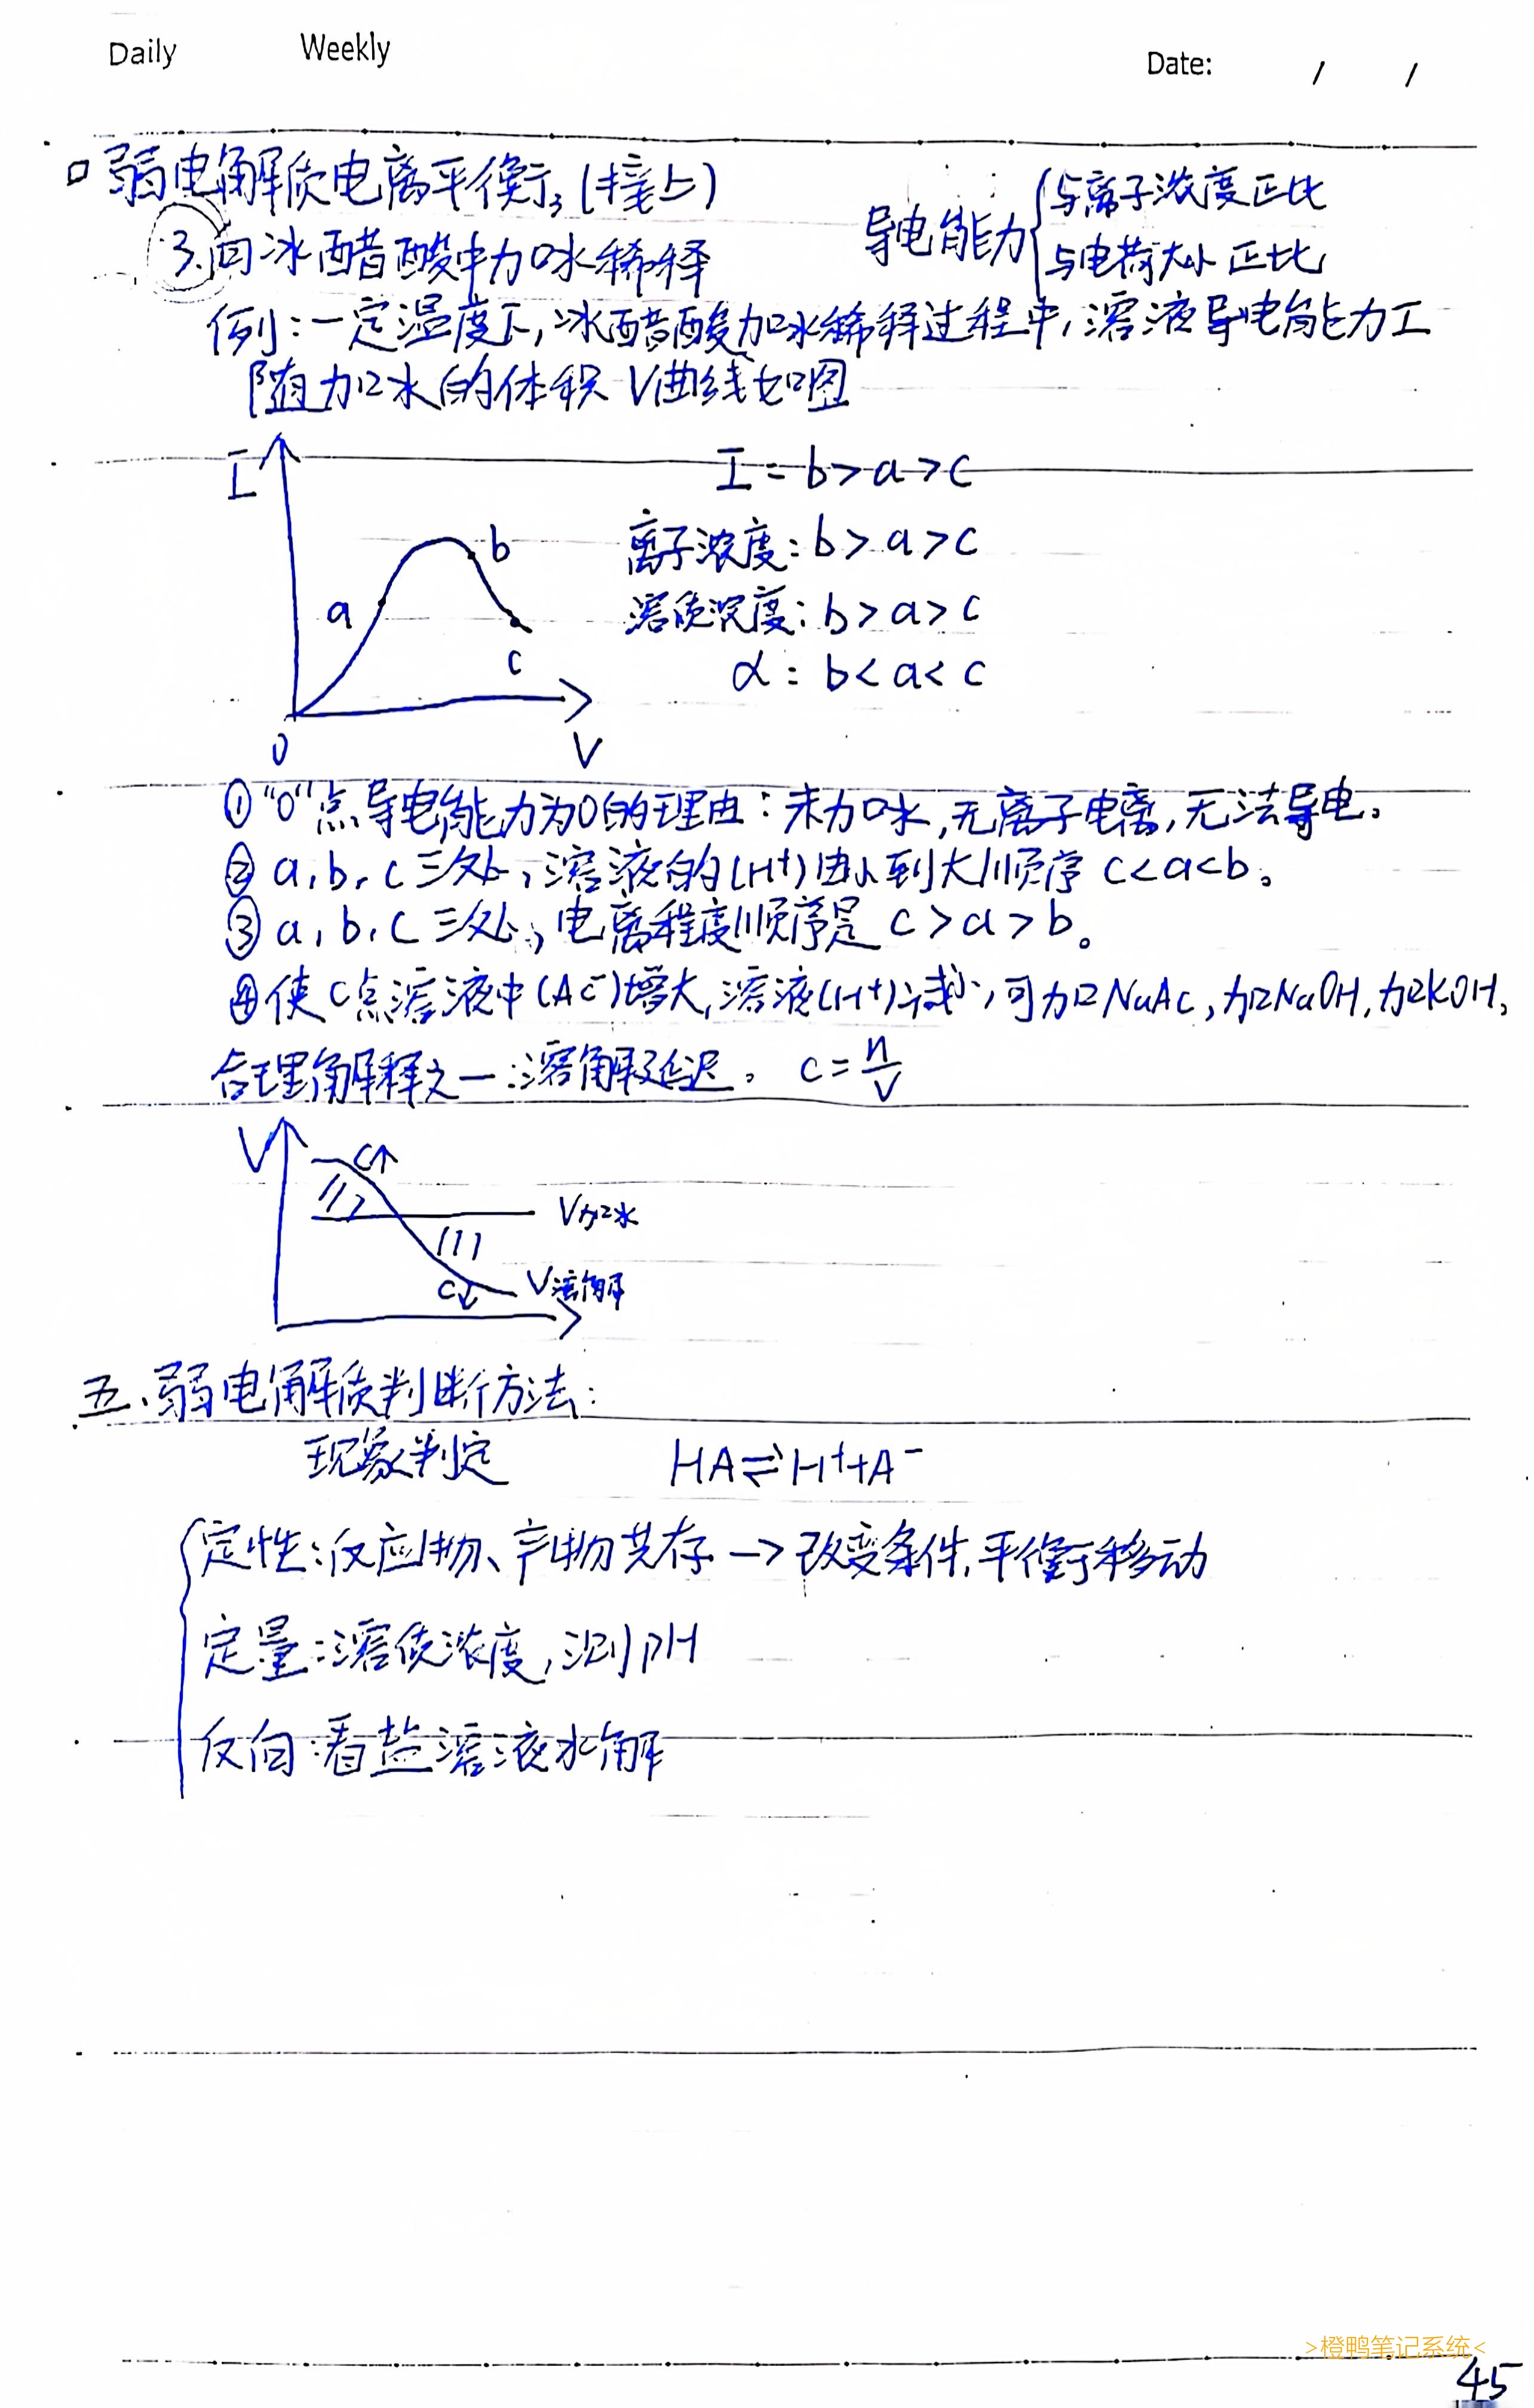 Daily Weekly Date: / /
弱电解质电离平衡(接上)
3.向冰醋酸中加水稀释
导电能力
与离子浓度正比
与电荷大小正比
例:一定温度下,冰醋酸加水稀释过程中,溶液导电能力I
随加水的体积V曲线如图
I
a
b
c
0
V
I = b>a>c
离子浓度:b>a>c
溶质浓度:b>a>c
α:b<a<c
①"0"点导电能力为0的理由:未加水,无离子电离,无法导电。
②a,b,c三处,溶液的(H⁺)由小到大顺序c<a<b。
③a,b,c三处,电离程度顺序是c>a>b。
④使c点溶液中(Ac⁻)增大,溶液(H⁺)减小,可加NaAc,加NaOH,加KOH,
合理解释之一:溶解延迟。 c=n/V
V
c↑
V加水
c↓
V溶解
五.弱电解质判断方法:
现象判定 HA⇌H⁺+A⁻
定性:反应物、产物共存→改变条件,平衡移动
定量:溶质浓度,测pH
反向:看盐溶液水解
>橙鸭笔记系统<
45